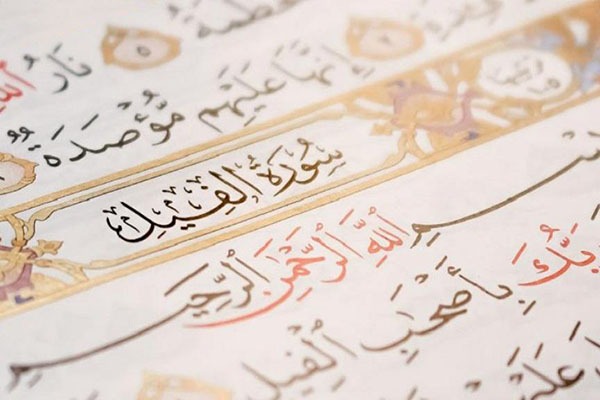 ٥ نَارُ
إِنَّهَا عَلَيْهِم مُّؤْصَدَةٌ
سُورَةُ الفِيلِ
بِسْمِ ٱللَّهِ ٱلرَّحْمَٰنِ ٱلرَّحِيمِ
رَبُّكَ بِأَصْحَٰبِ ٱلْفِيلِ